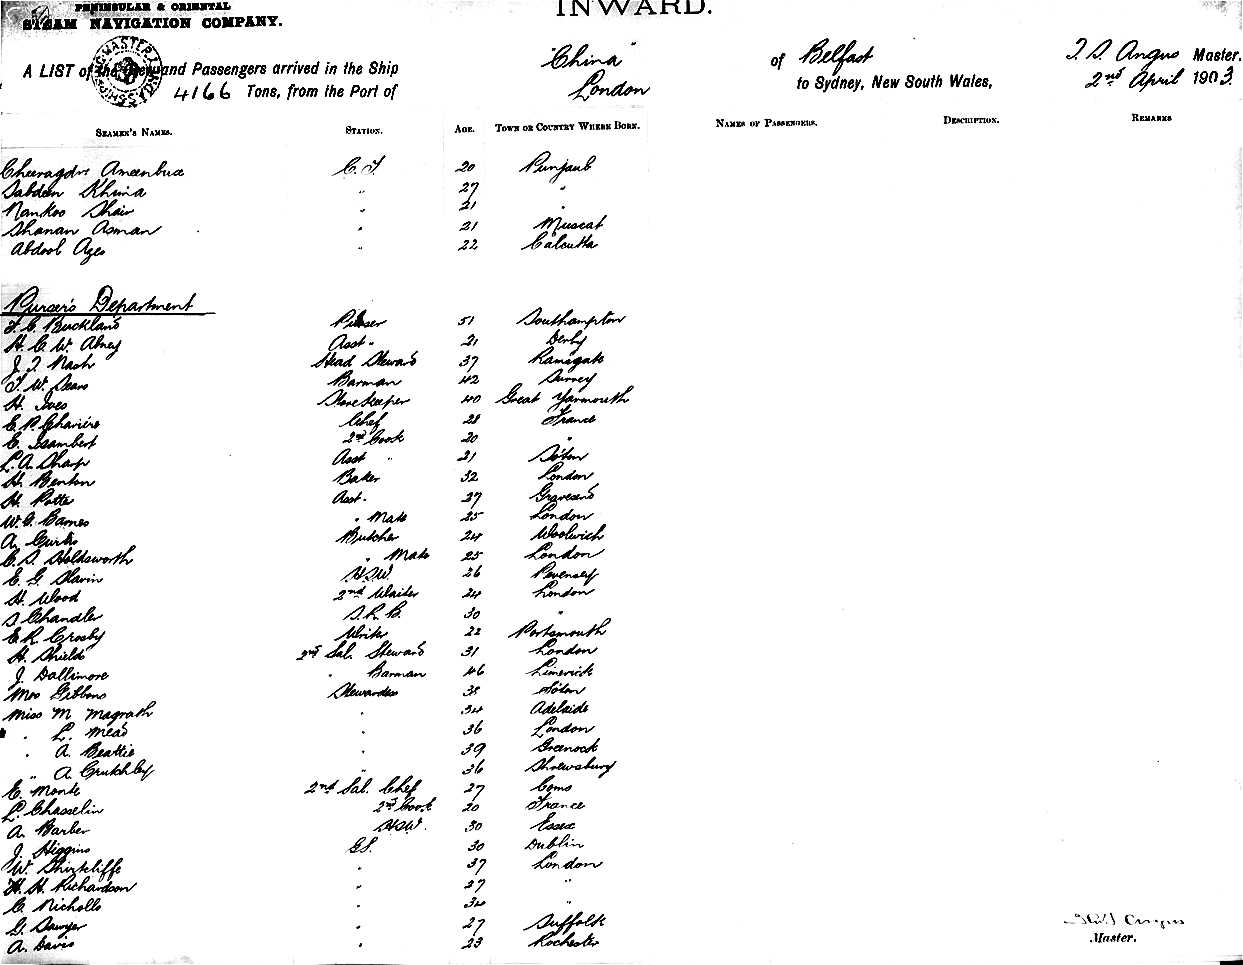 PENINSULAR & ORIENTAL
STEAM NAVIGATION COMPANY.
INWARD.
A LIST of the Crew and Passengers arrived in the Ship "China" of Belfast Master.
4166 Tons, from the Port of London to Sydney, New South Wales, 2nd April 1903.
SEAMEN'S NAMES. STATION. AGE. TOWN OR COUNTRY WHERE BORN. NAMES OF PASSENGERS. DESCRIPTION. REMARKS
Ameenbux C.T 20 Punjaub
Khima " 27 "
Nankoo Shair " 21 "
Shanan Asman " 21 Muscat
Abdool Azes " 22 Calcutta
Purser's Department
F. C. Buckland Purser 51 Southampton
H. C. W. Abney Asst " 21 Derby
J. T. Nash Head Steward 37 Ramsgate
T. W. Sears Barman 42 Surrey
H. Ives Storekeeper 40 Great Yarmouth
Chef 28 France
C. Isambert 2nd Cook 20 "
L. A. Sharp Asst " 21 S'ton
H. Benton Baker 32 London
H. Potter Asst. 27 Gravesend
W. G. Barnes " Mate 25 London
A. Curtis Butcher 24 Woolwich
C. S. Holdsworth " Mate 25 London
E. G. Slavin HSW. 26 Pevensey
H. Wood 2nd Waiter 24 London
S Chandler S.R.B. 30 "
E. R. Crosby Writer 22 Portsmouth
H. Shield 2nd Sal. Steward 31 London
J. Dallimore " Barman 46 Limerick
Mrs Gibbons Stewardess 38 S'ton
Miss M Magrath " 34 Adelaide
" L. Mead " 36 London
" A. Beattie " 39 Greenock
" A. Crutchley " 36 Shrewsbury
C. Monte 2nd Sal. Chef 27 Como
L. Chasselin 2nd Cook 20 France
A. Barber HSW. 30 Essex
J. Higgins G.S. 30 Dublin
W. Shirtcliffe " 37 London
H. H. Richardson " 27 "
C. Nicholls " 34 "
G. Sawyer " 27 Suffolk
A. Davis " 23 Rochester
Angus
Master.